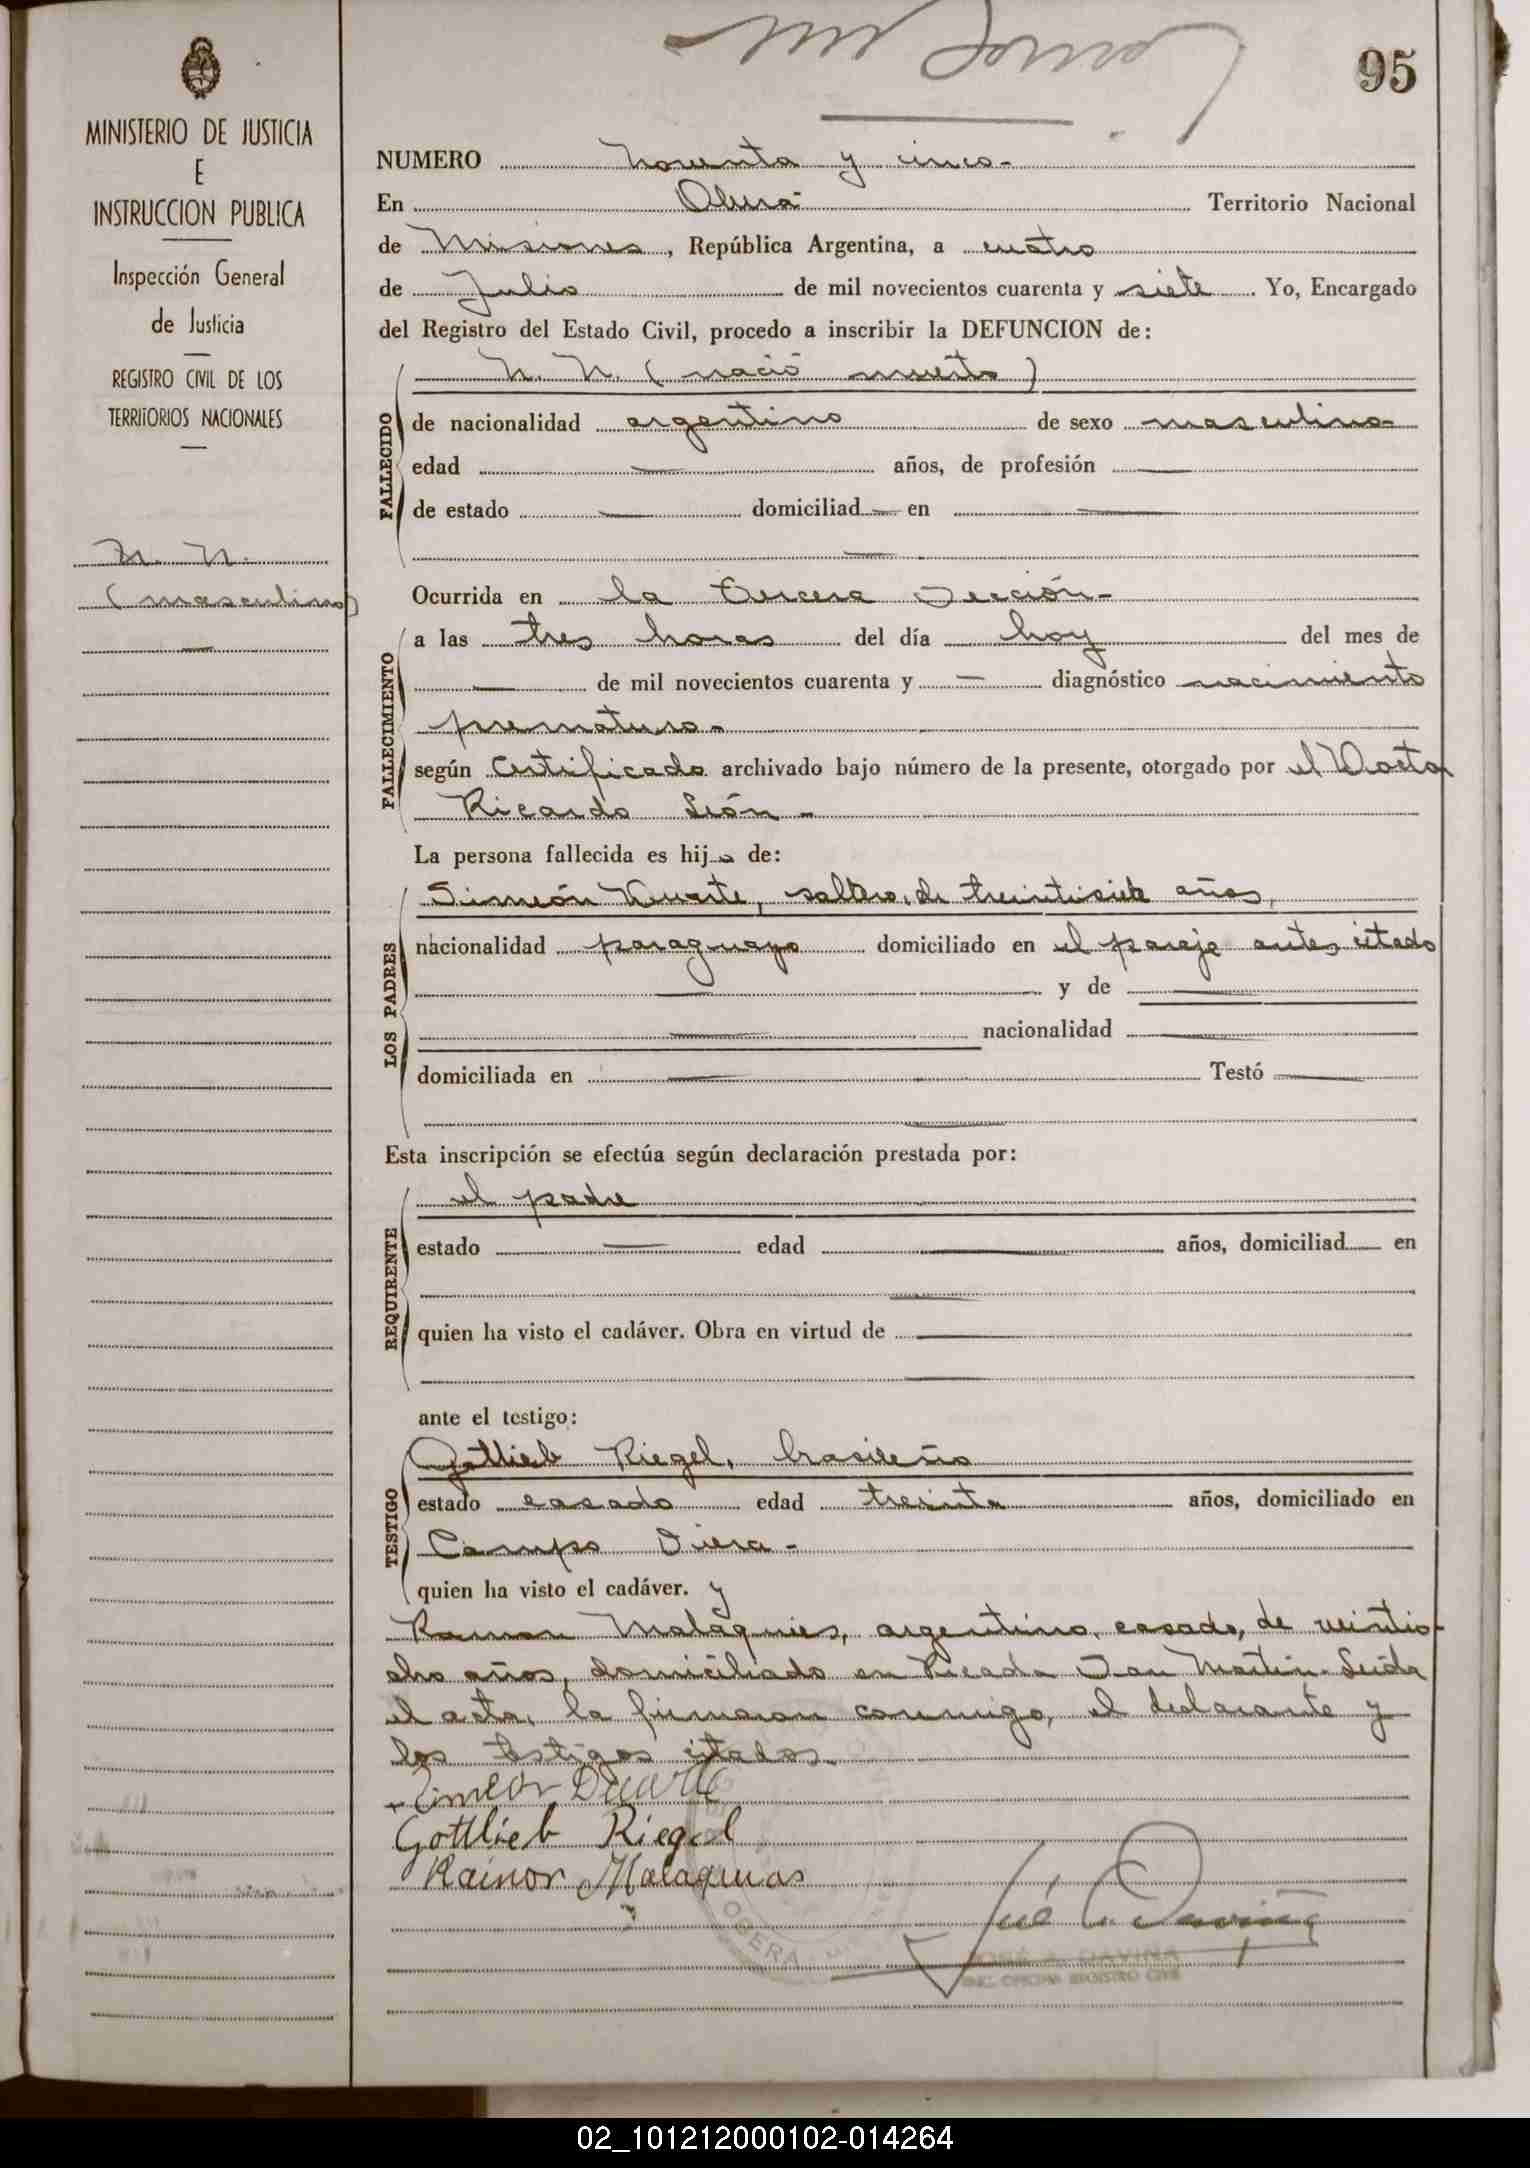 MINISTERIO DE JUSTICIA
E
INSTRUCCION PUBLICA
Inspección General
de Justicia
REGISTRO CIVIL DE LOS
TERRITORIOS NACIONALES
N. N.
(masculino)
95
NUMERO noventa y cinco-
En Oberá- Territorio Nacional
de Misiones, República Argentina, a cuatro
de Julio de mil novecientos cuarenta y siete Yo, Encargado
del Registro del Estado Civil, procedo a inscribir la DEFUNCION de:
FALLECIDO
N. N. (nació muerto)
de nacionalidad argentino de sexo masculino-
edad — años, de profesión —
de estado — domiciliad — en —
—
FALLECIMIENTO
Ocurrida en la tercera Sección-
a las tres horas del día hoy del mes de
— de mil novecientos cuarenta y — diagnóstico nacimiento
prematuro-
según certificado archivado bajo número de la presente, otorgado por el Doctor
Ricardo León-
La persona fallecida es hijo de:
LOS PADRES
Simeón Duarte, soltero, de treintisiete años,
nacionalidad paraguayo domiciliado en el paraje antes citado
— y de —
— nacionalidad —
domiciliada en — Testó —
—
Esta inscripción se efectúa según declaración prestada por:
REQUIRENTE
el padre
estado — edad — años, domiciliad — en
—
quien ha visto el cadáver. Obra en virtud de —
—
ante el testigo:
TESTIGO
Gottlieb Riegel, brasileño
estado casado edad treinta años, domiciliado en
Campo Viera-
quien ha visto el cadáver. y
Ramon Malaquies, argentino, casado, de veintio-
cho años, domiciliado en Picada San Martín. Leida
el acta, la firmaron conmigo, el declarante y
los testigos citados.
Simeon Duarte
Gottlieb Riegel
Ramon Malaquias
OBERA
JOSÉ A. DAVIÑA
ENC. OFICINA REGISTRO CIVIL
02_101212000102-014264